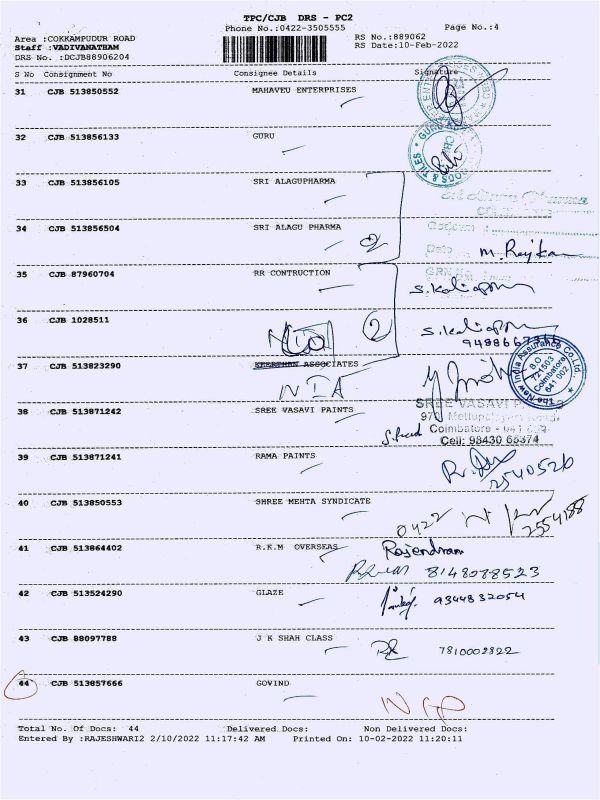 TPC/CJB DRS - PC2
Phone No.:0422-3505555 Page No.:4
Area :COKKAMPUDUR ROAD RS No.:889062
Staff :VADIVANATHAM RS Date:10-Feb-2022
DRS No. :DCJB88906204
S No Consignment No Consignee Details Signature
31 CJB 513850552 MAHAVEU ENTERPRISES
32 CJB 513856133 GURU
33 CJB 513856105 SRI ALAGUPHARMA
34 CJB 513856504 SRI ALAGU PHARMA
2
Date M. Rajkan
35 CJB 87960704 RR CONTRUCTION
36 CJB 1028511
2
37 CJB 513823290 ASSOCIATES
NIA
The New India Assurance Co.Ltd.,
B.O
721503
Coimbatore
641 002
38 CJB 513871242 SREE VASAVI PAINTS
SREE VASAVI
Coimbatore
Cell: 98430 65374
39 CJB 513871241 RAMA PAINTS
2540526
40 CJB 513850553 SHREE MEHTA SYNDICATE
0422
2554188
41 CJB 513864402 R.K.M OVERSEAS
Rajendran
8148088523
42 CJB 513524290 GLAZE
9344832054
43 CJB 88097788 J K SHAH CLASS
7810002822
44 CJB 513857666 GOVIND
Total No. Of Docs: 44 Delivered Docs: Non Delivered Docs:
Entered By :RAJESHWARI2 2/10/2022 11:17:42 AM Printed On: 10-02-2022 11:20:11